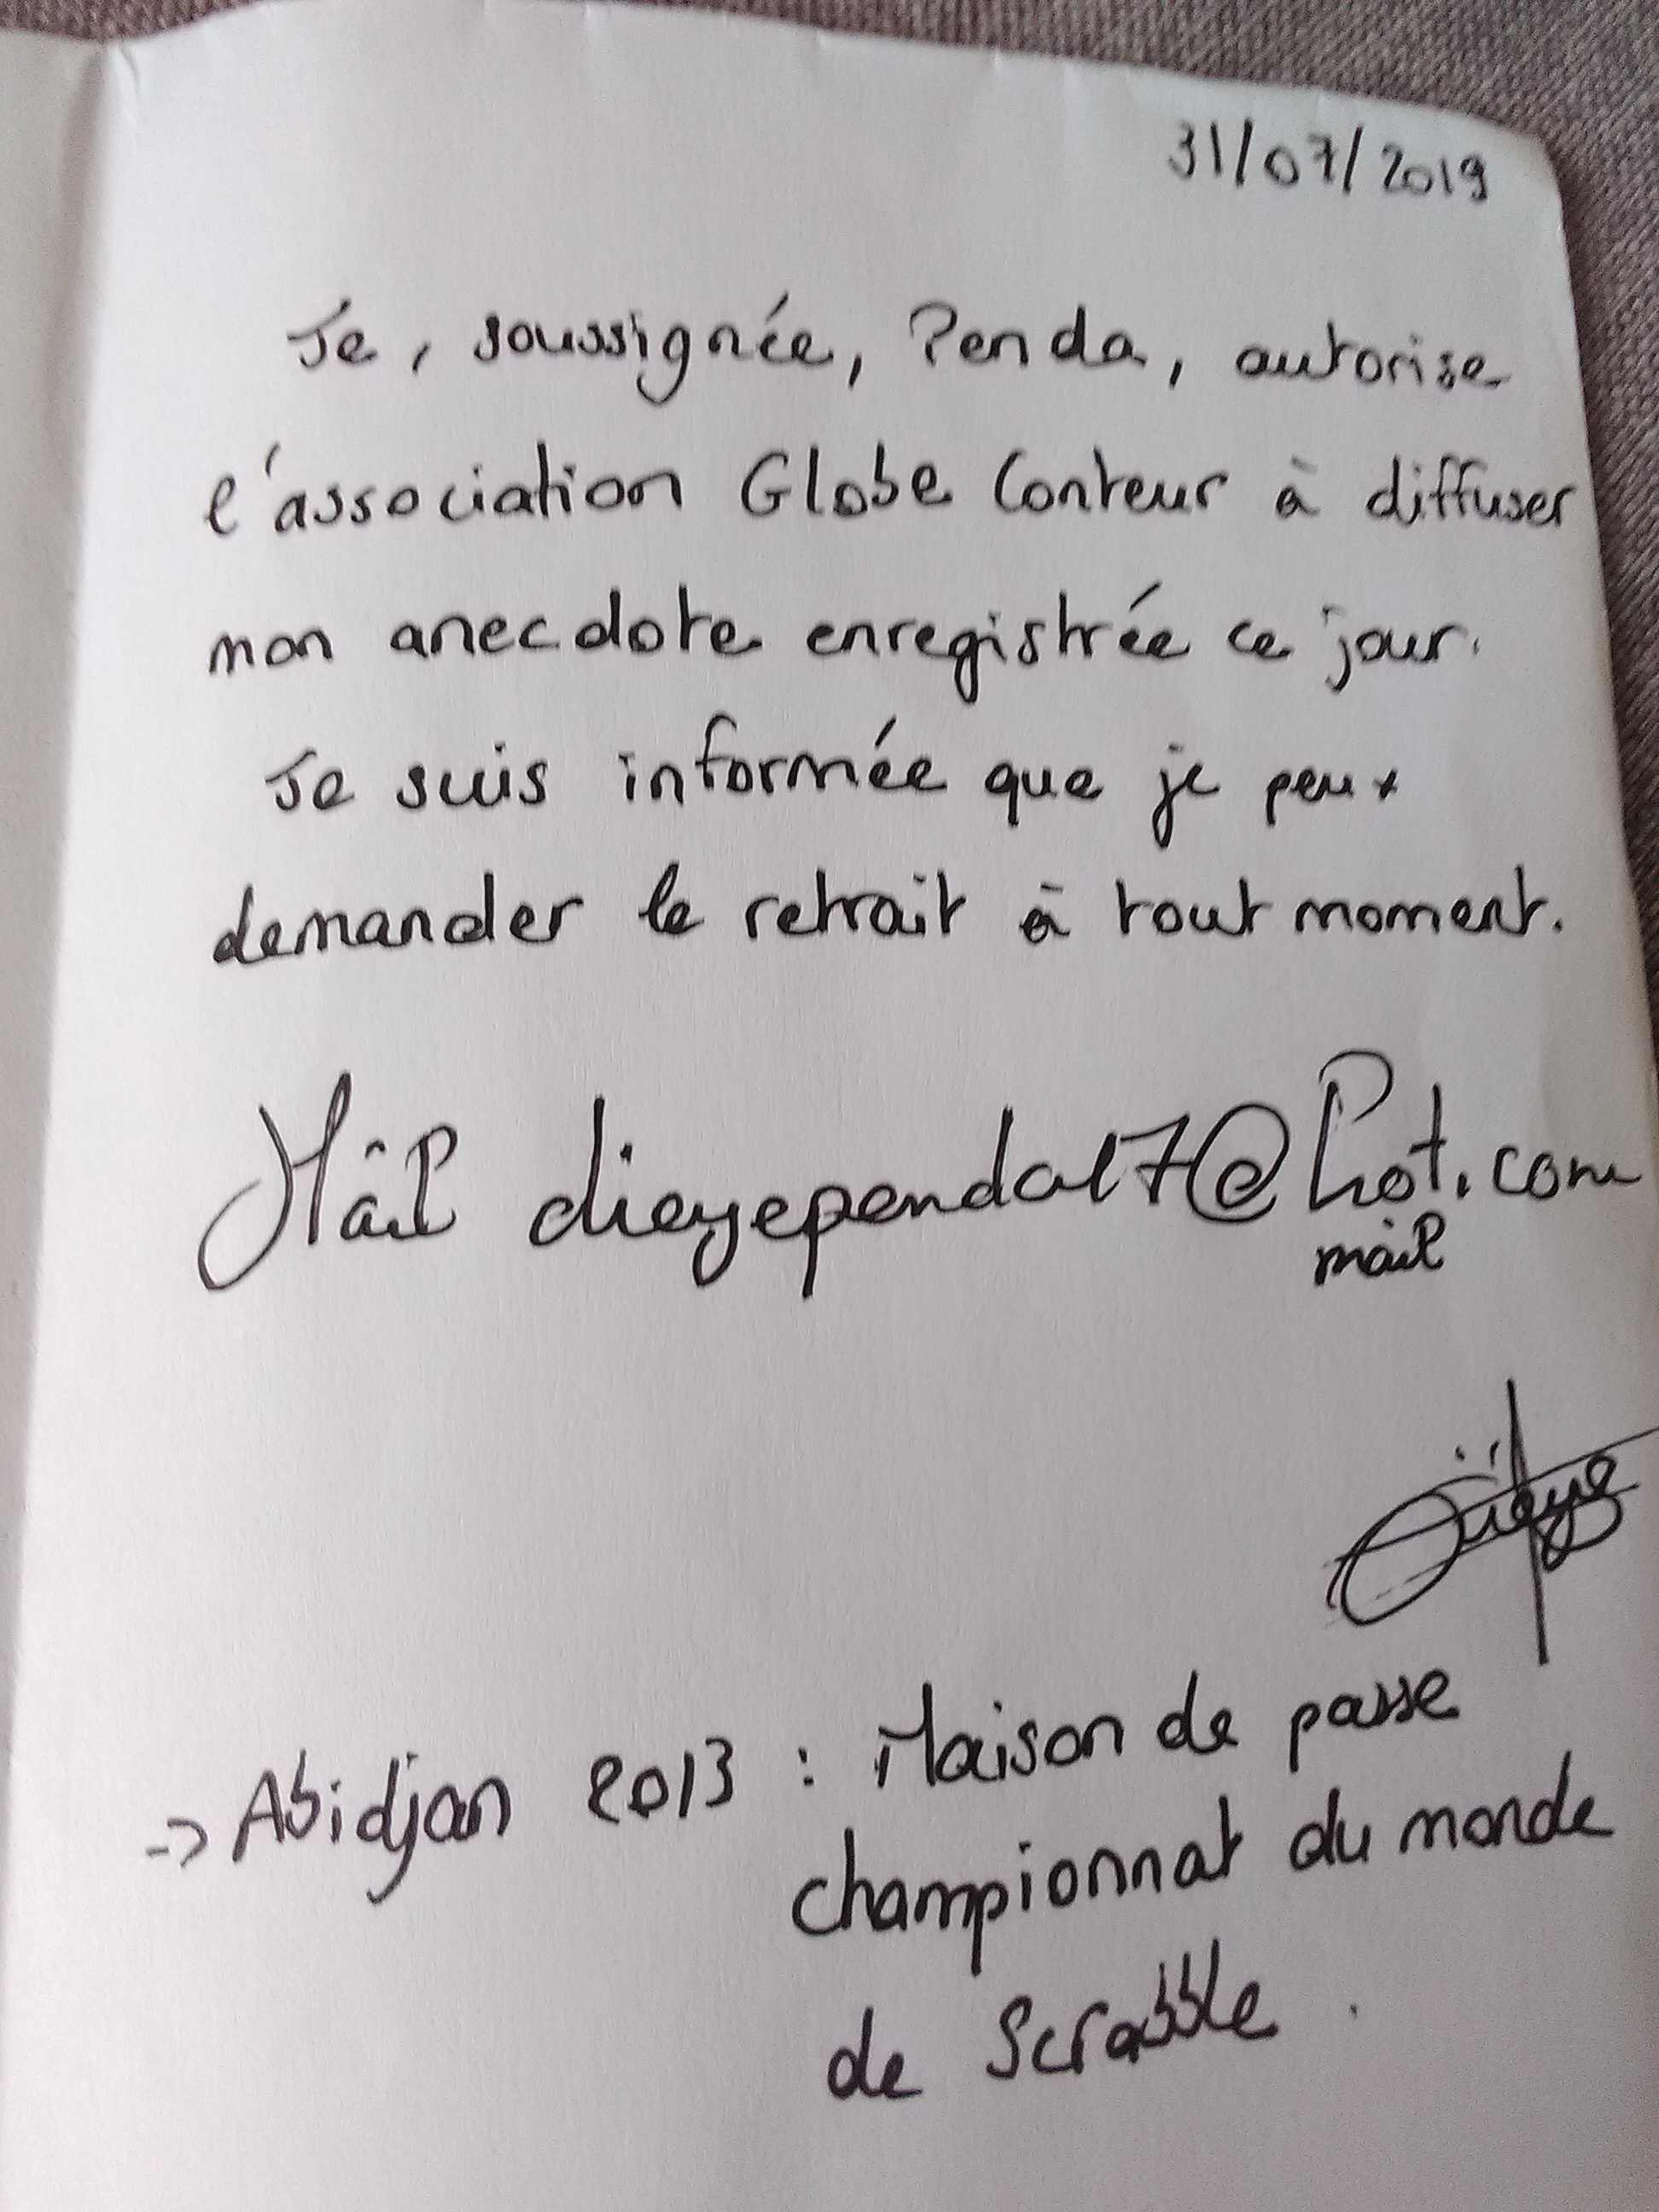 31/07/2019
Je, soussignée, Penda, autorise
l'association Globe Conteur à diffuser
mon anecdote enregistrée ce jour.
Je suis informée que je peux
demander le retrait à tout moment.
Mâil dieyependa17@hot.com
mail
Dieye
-> Abidjan 2013 : Maison de passe
championnat du monde
de Scrabble.